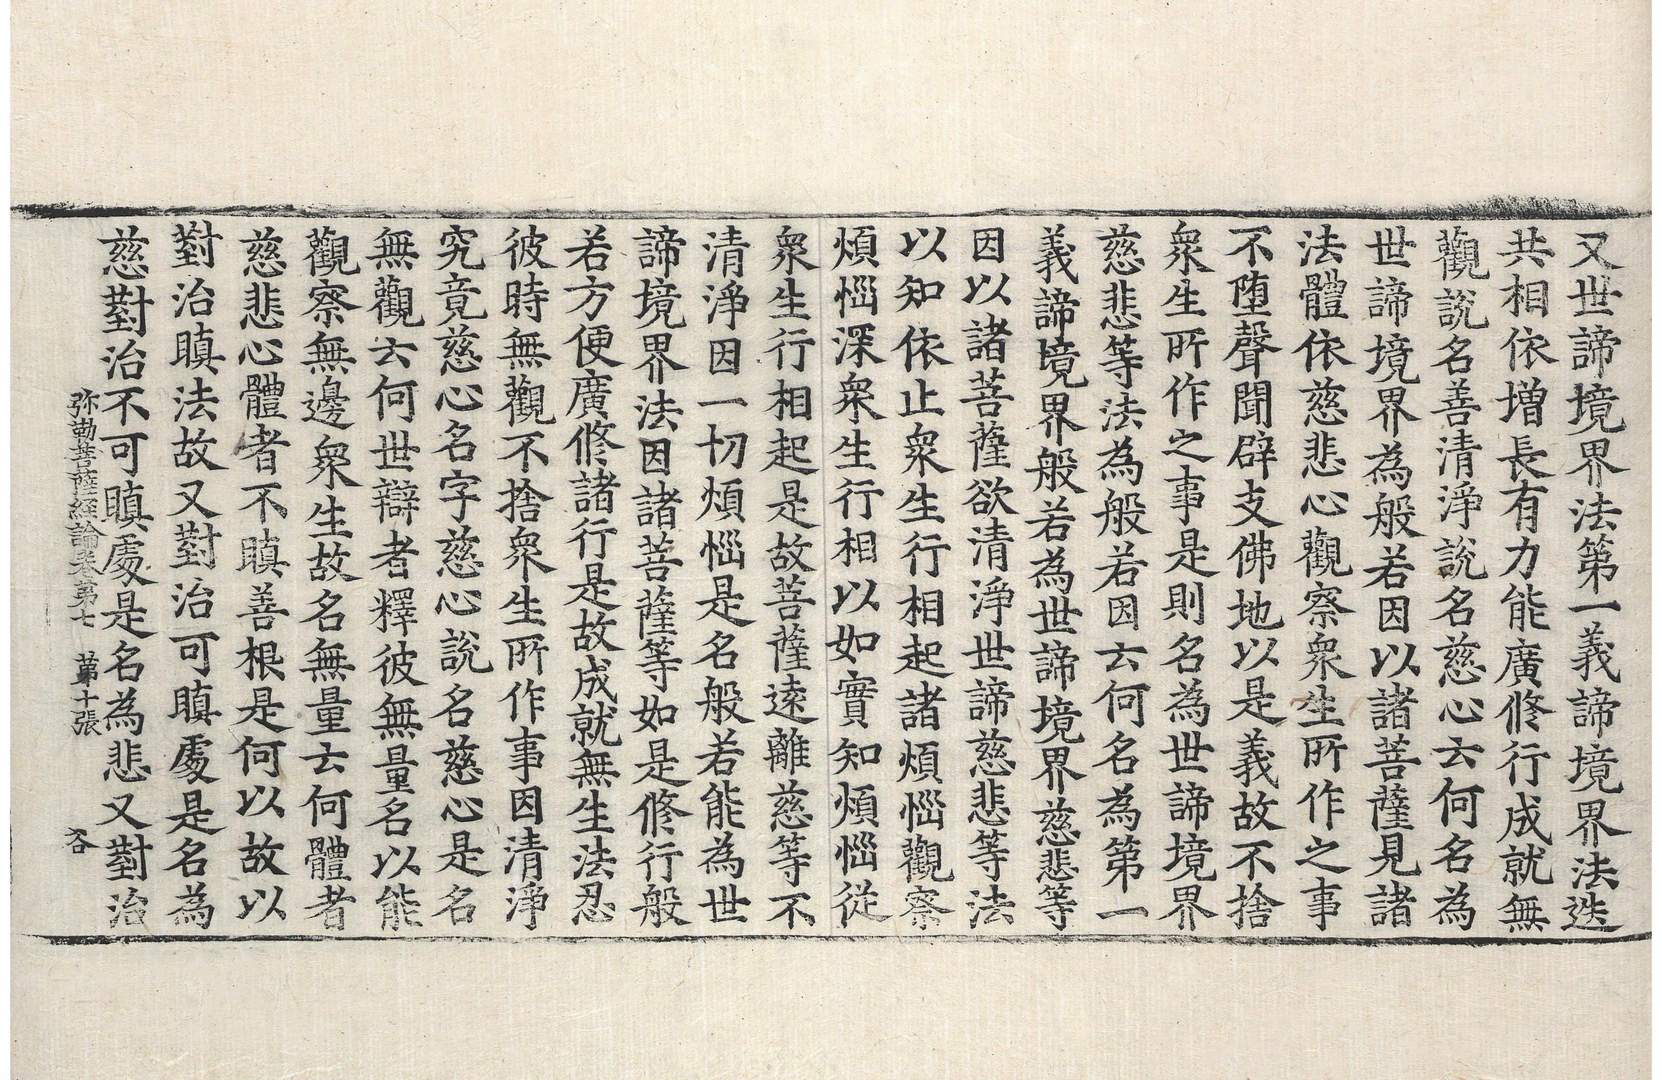 又世諦境界法第一義諦境界法迭
共相依增長有力能廣修行成就無
觀說名善清淨說名慈心云何名為
世諦境界為般若因以諸菩薩見諸
法體依慈悲心觀察衆生所作之事
不墮聲聞辟支佛地以是義故不捨
衆生所作之事是則名為世諦境界
慈悲等法為般若因云何名為第一
義諦境界般若為世諦境界慈悲等
因以諸菩薩欲清淨世諦慈悲等法
以知依止衆生行相起諸煩惱觀察
煩惱深衆生行相以如實知煩惱從
衆生行相起是故菩薩遠離慈等不
清淨因一切煩惱是名般若能為世
諦境界法因諸菩薩等如是修行般
若方便廣修諸行是故成就無生法忍
彼時無觀不捨衆生所作事因清淨
究竟慈心名字慈心說名慈心是名
無觀云何世辯者釋彼無量名以能
觀察無邊衆生故名無量云何體者
慈悲心體者不瞋善根是何以故以
對治瞋法故又對治可瞋處是名為
慈對治不可瞋處是名為悲又對治
弥勒菩薩經論卷第七　第十張　　㕣